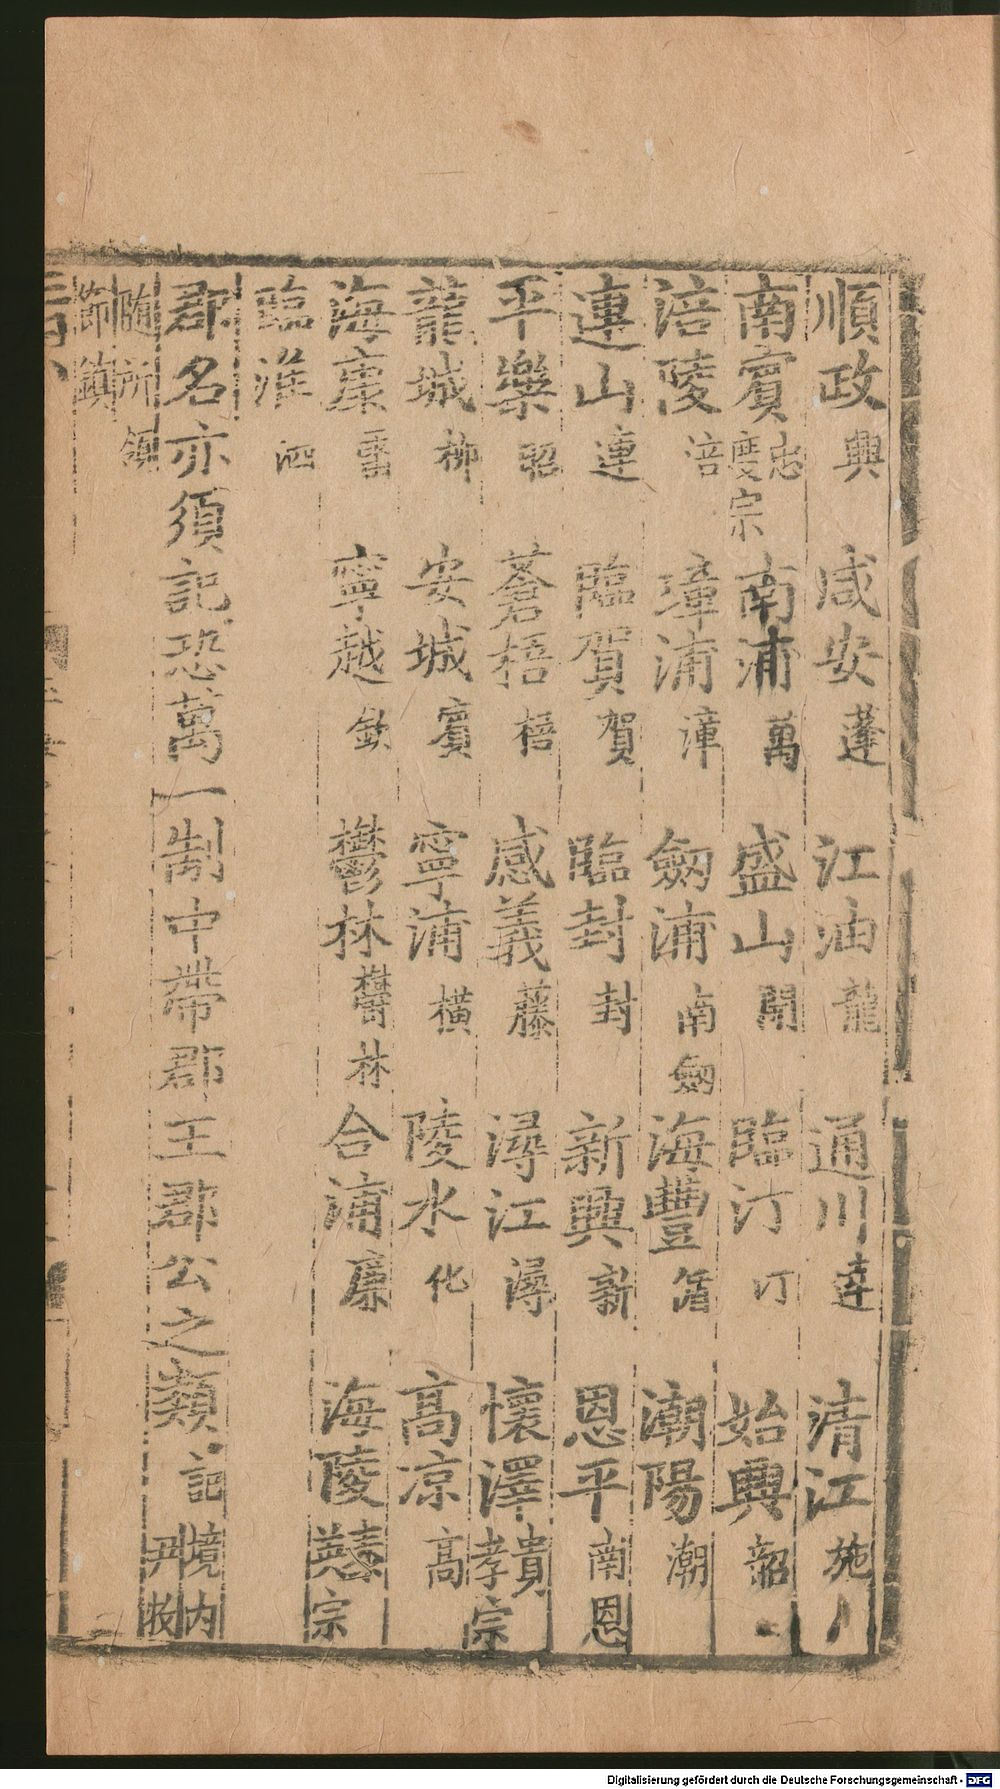 順政 興 咸安 蓬 江油 龍 通川 達 清江 施
南賓 忠 度宗 南浦 萬 盛山 開 臨汀 汀 始興 韶
涪陵 涪 漳浦 漳 劔浦 南劔 海豐 循 潮陽 潮
連山 連 臨賀 賀 臨封 封 新興 新 恩平 南恩
平樂 昭 蒼梧 梧 感義 藤 潯江 潯 懷澤 貴 孝宗
龍城 柳 安城 賓 寧浦 橫 陵水 化 高凉 高
海康 雷 寧越 欽 鬱林 鬱林 合浦 廉 海陵 英宗
臨淮 泗
郡名亦須記恐萬一制中帶郡王郡公之類 記境内
尹牧
隨所領
節鎮
Digitalisierung gefördert durch die Deutsche Forschungsgemeinschaft - DFG